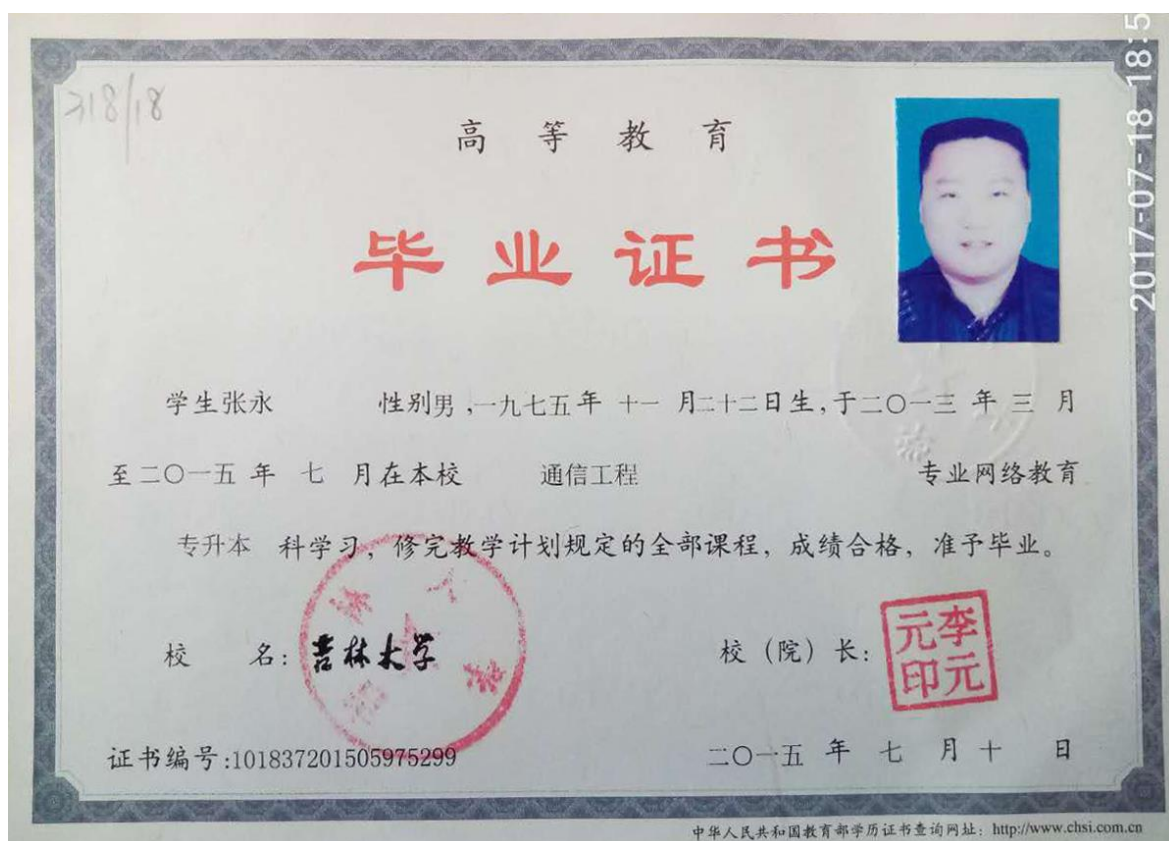 318/18
高等教育
毕业证书
学生张永 性别男,一九七五年十一月二十二日生,于二〇一三年三月
至二〇一五年七月在本校 通信工程 专业网络教育
专升本 科学习,修完教学计划规定的全部课程,成绩合格,准予毕业。
校 名:吉林大学
校(院)长:
李元元印
证书编号:101837201505975299
二〇一五年七月十日
中华人民共和国教育部学历证书查询网址:http://www.chsi.com.cn
2017-07-18 18:5